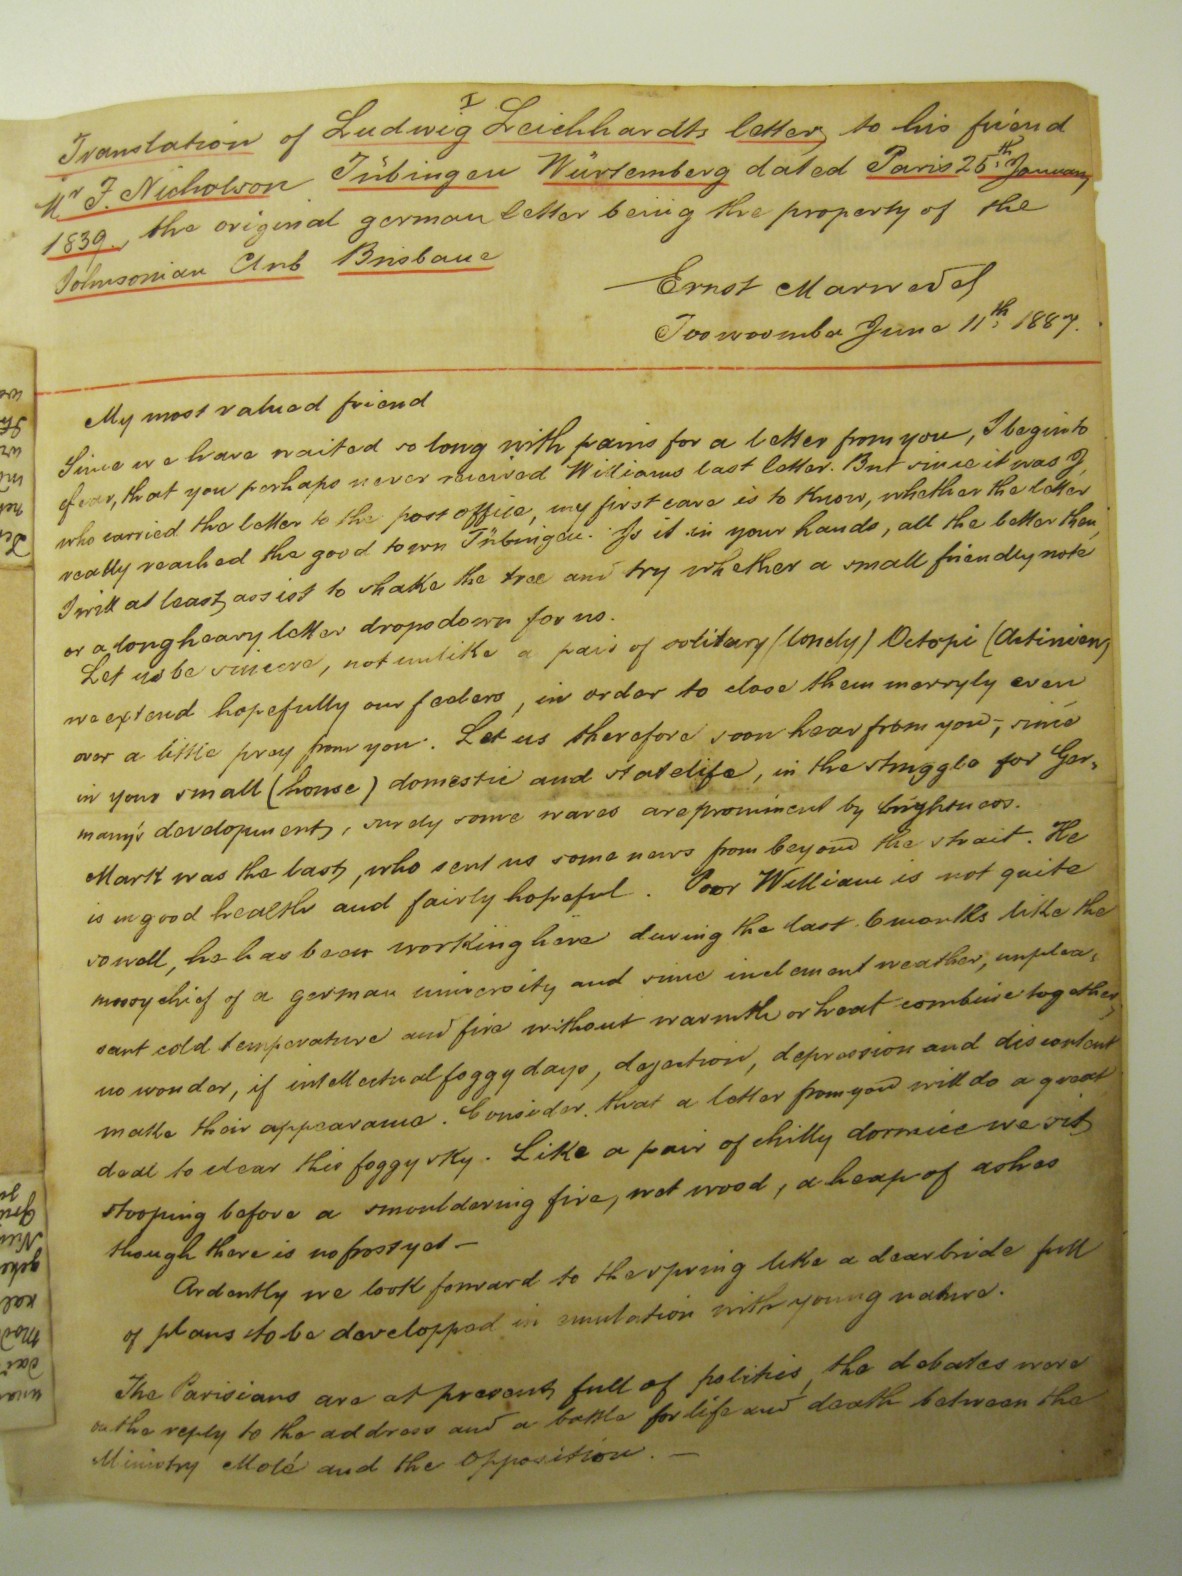 I
Translation of Ludwig Leichhardts letter, to his friend
Mr F. Nicholson Tübingen Würtemberg dated Paris 25th January
1839., the original german letter being the property of the
Johnsonian Club Brisbane
Ernst Marwedel
Toowoomba June 11th 1887.
My most valued friend
Since we have waited so long with pains for a letter from you, I begin to
fear, that you perhaps never received Williams last letter. But since it was I,
who carried the letter to the post office, my first care is to know, whether the letter
really reached the good town Tübingen. Is it in your hands, all the better then,
I will at least, assist to shake the tree and try whether a small friendly note
or a long heavy letter drops down for us.
Let us be sincere, not unlike a pair of solitary (lonely) Octopi (Actinien)
we extend hopefully our feelers, in order to close them merryly even
over a little prey from you. Let us therefore soon hear from you, since
in your small (house) domestic and state life, in the struggle for Ger-
many's development, surely some waves are prominent by brightness.
Mark was the last, who sent us some news from beyond the strait. He
is in good health and fairly hopeful. Poor William is not quite
so well, he has been working here during the last 6 months like the
mossy chief of a german university and since inclement weather, unplea-
sant cold temperature and fire without warmth or heat combine together,
no wonder, if intellectual foggy days, dejection, depression and discontent
make their appearance. Consider that a letter from you will do a great
deal to clear this foggy sky. Like a pair of chilly dormice we sit
stooping before a smouldering fire, wet wood, a heap of ashes
though there is no frost yet —
Ardently we look forward to the spring like a dear bride full
of plans to be developped in emulation with young nature.
The Parisians are at present full of politics, the debates were
on the reply to the address and a battle for life and death between the
Ministry Molé and the Opposition. —